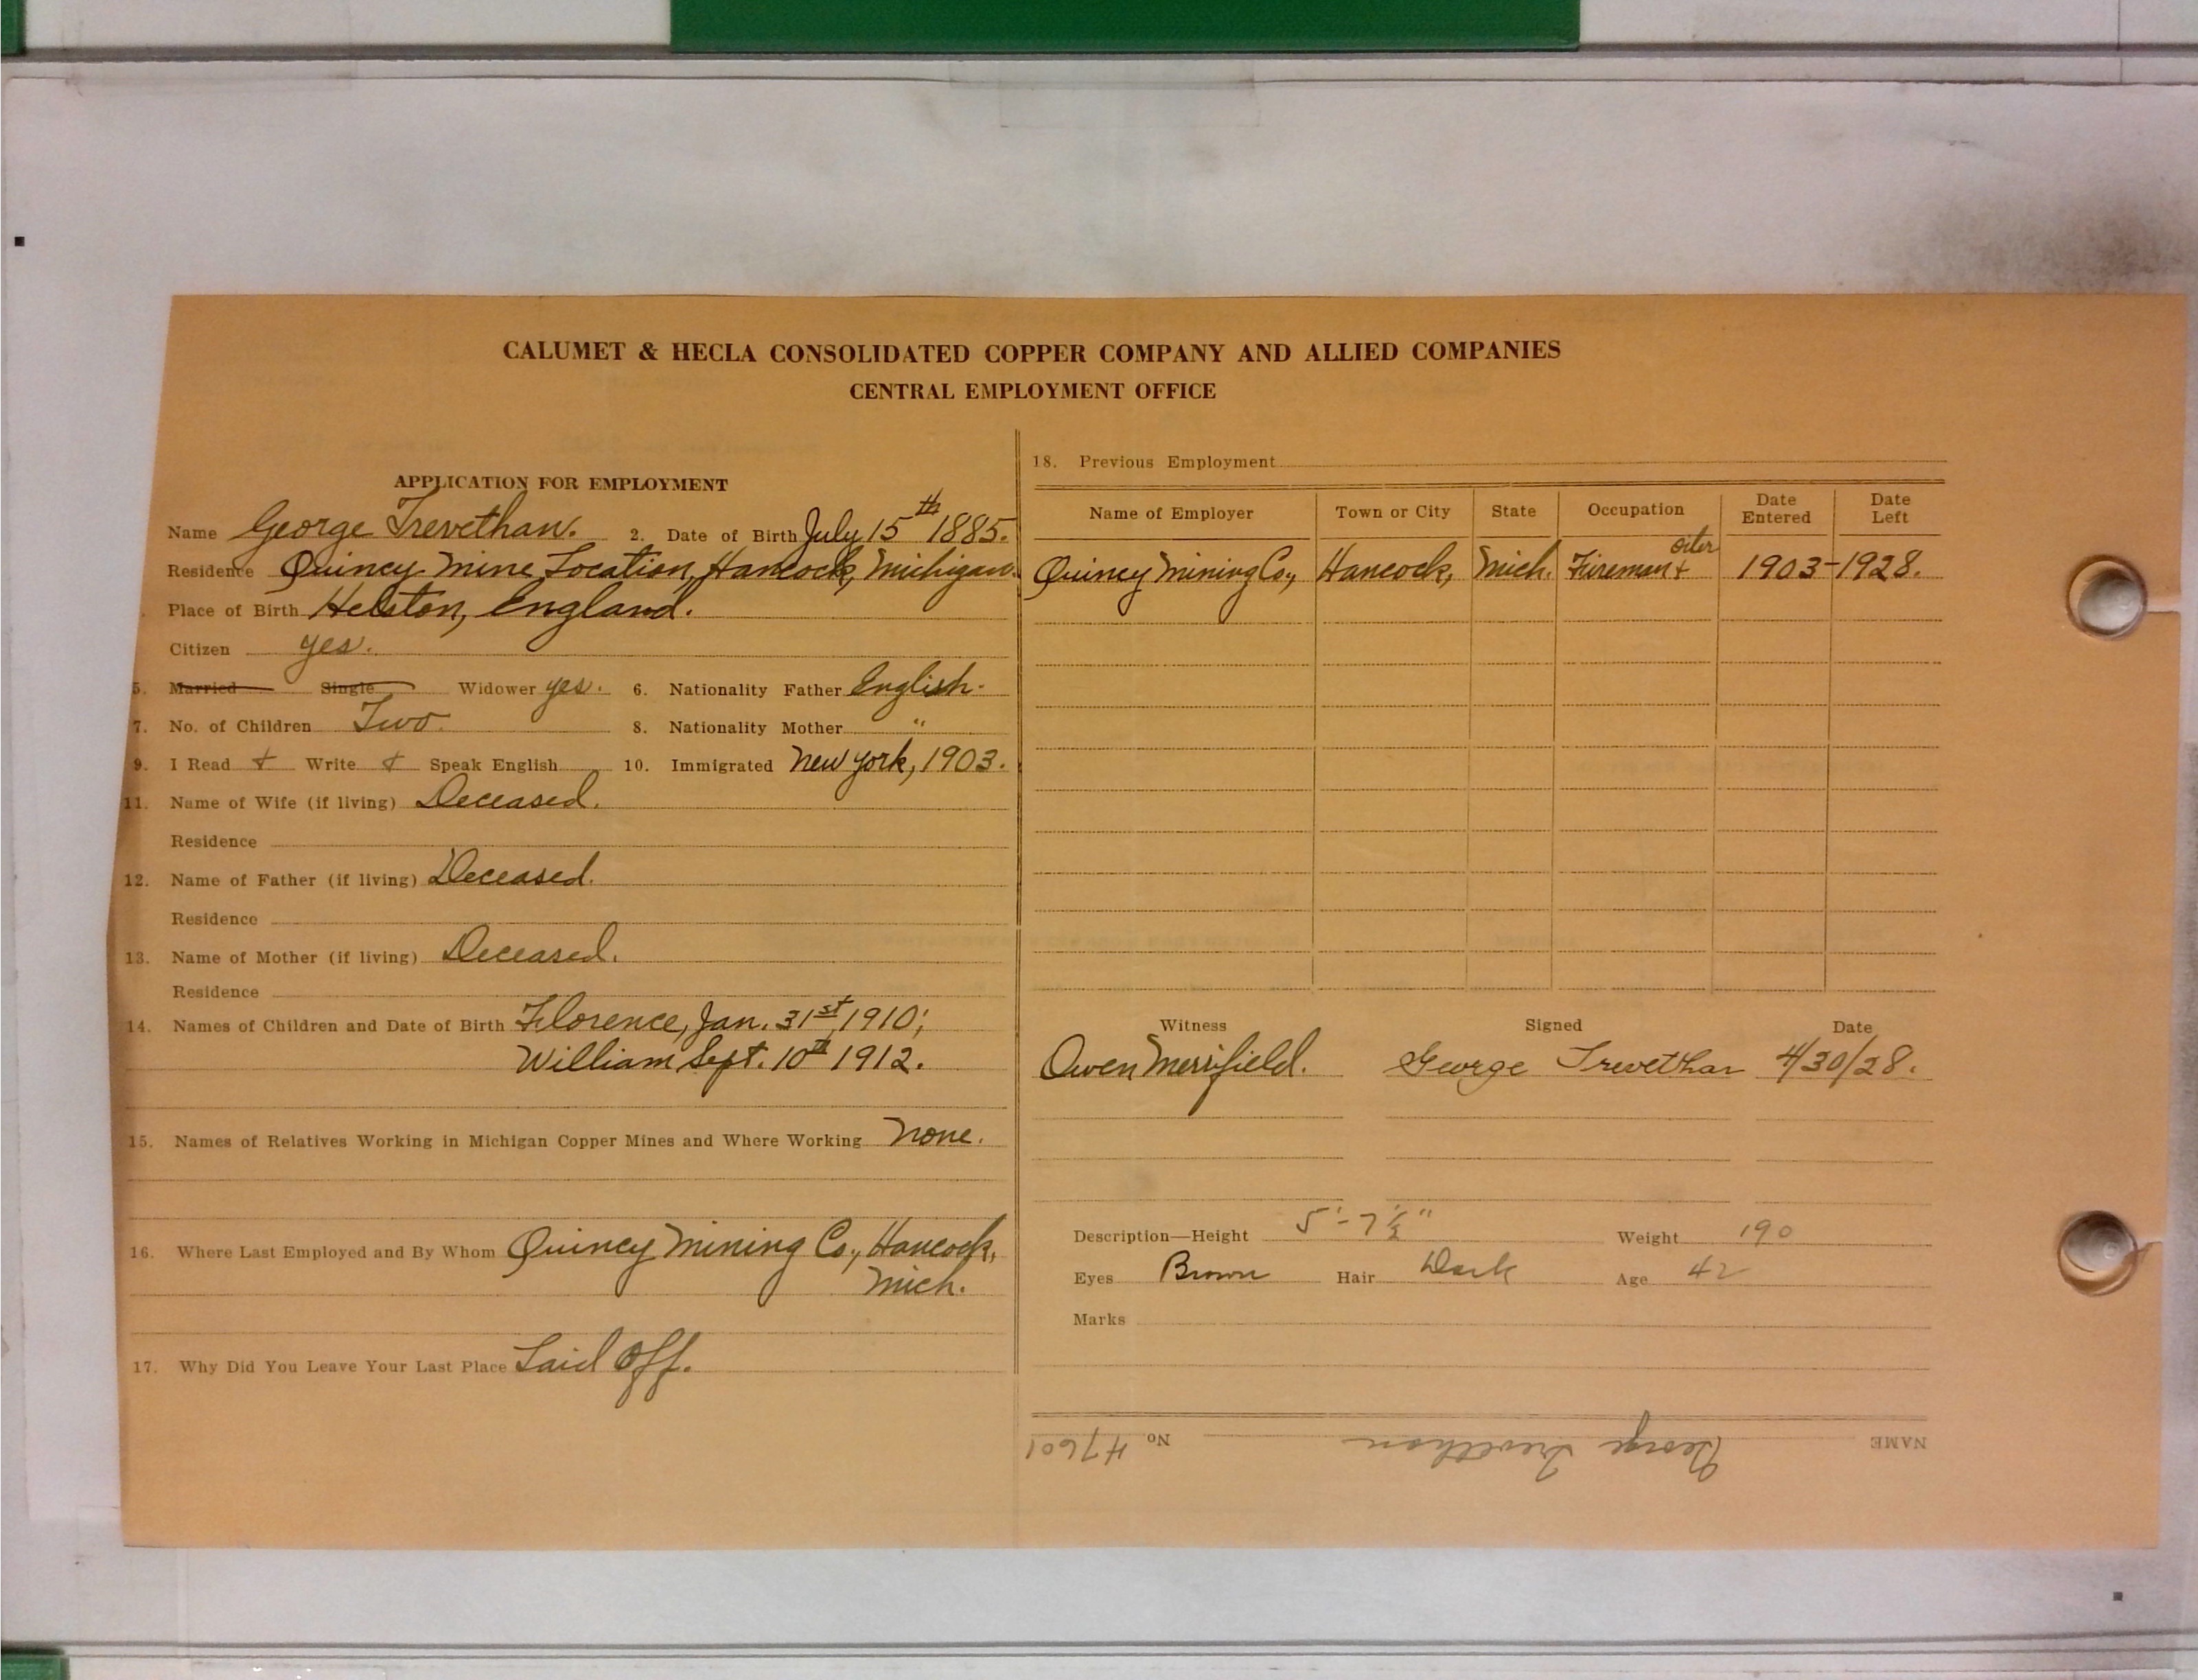 CALUMET & HECLA CONSOLIDATED COPPER COMPANY AND ALLIED COMPANIES
CENTRAL EMPLOYMENT OFFICE
APPLICATION FOR EMPLOYMENT
Name George Trevethan. 2. Date of Birth July 15th 1885.
Residence Quincy Mine Location, Hancock, Michigan.
Place of Birth Helston, England.
Citizen yes.
5. Married Single Widower yes. 6. Nationality Father English.
7. No. of Children Two. 8. Nationality Mother "
9. I Read + Write + Speak English 10. Immigrated New York, 1903.
11. Name of Wife (if living) Deceased.
Residence
12. Name of Father (if living) Deceased.
Residence
13. Name of Mother (if living) Deceased.
Residence
14. Names of Children and Date of Birth Florence, Jan. 31st, 1910;
William Sept. 10th 1912.
15. Names of Relatives Working in Michigan Copper Mines and Where Working None.
16. Where Last Employed and By Whom Quincy Mining Co., Hancock,
Mich.
17. Why Did You Leave Your Last Place Laid Off.
18. Previous Employment
Name of Employer Town or City State Occupation Date Entered Date Left
Quincy Mining Co., Hancock, Mich. Fireman + oiler 1903-1928.
Witness Signed Date
Owen Merrifield. George Trevethan 4/30/28.
Description—Height 5'-7½" Weight 190
Eyes Brown Hair Dark Age 42
Marks
NAME George Trevethan No. 47601